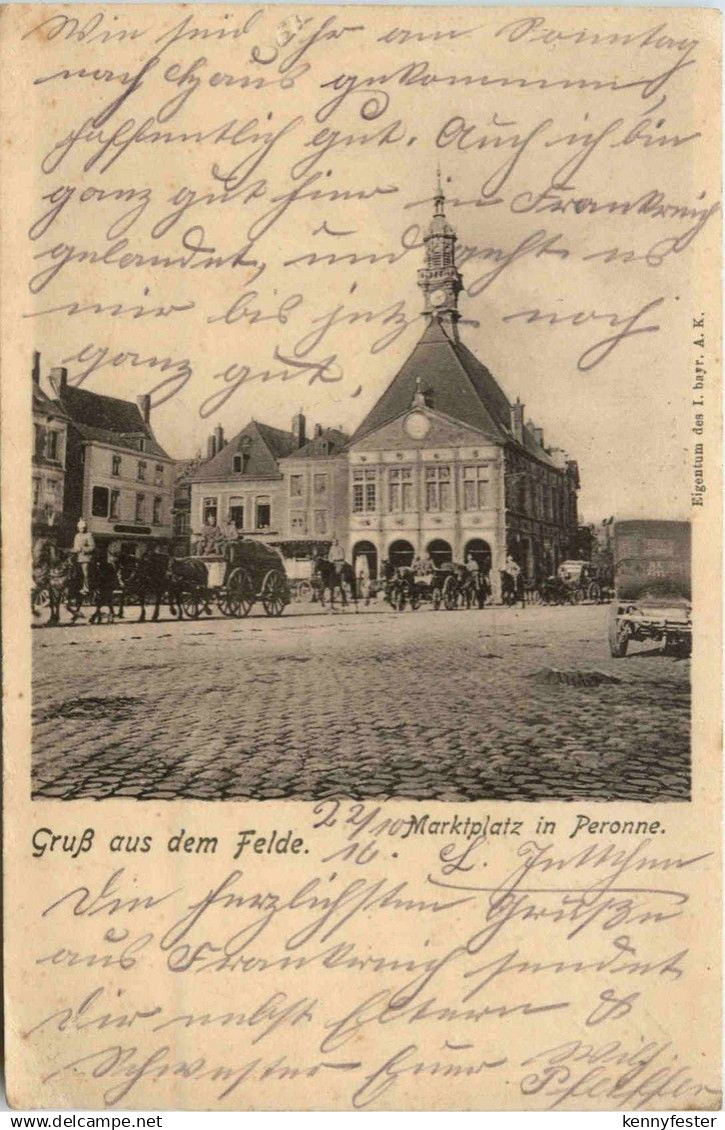 Wie seid Ihr am Sonntag
nach Haus gekommen,
hoffentlich gut. Auch ich bin
ganz gut hier in Frankreich
gelandet, und geht es
mir bis jetzt noch
ganz gut.
Eigentum des I. bayr. A. K.
Gruß aus dem Felde.
22/10 16.
Marktplatz in Peronne.
L. Juttchen
Die herzlichsten Grüße
aus Frankreich sendet
Dir nebst Eltern &
Schwester Euer Wilh.
Pfeiffer
kennyfester